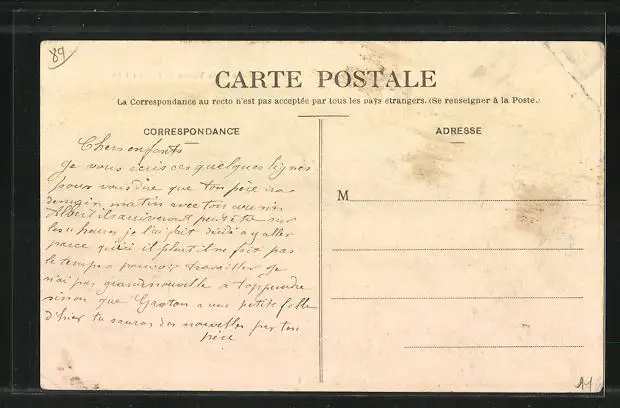 89
CARTE POSTALE
La Correspondance au recto n'est pas acceptée par tous les pays étrangers. (Se renseigner à la Poste.)
CORRESPONDANCE
ADRESSE
Chers enfants
Je vous écris ces quelques lignes
pour vous dire que ton père ira
demain matin avec ton cousin
Albert ils arriveront peut être sur
les 11 heures je l'ai fait décidé a y aller
parce qu'ici il pleut il ne fait pas
le temps a pouvoir travailler Je
n'ai pas grande nouvelle a t'apprendre
sinon que Gaston a une petite fille
d'hier tu sauras des nouvelles par ton
père
M